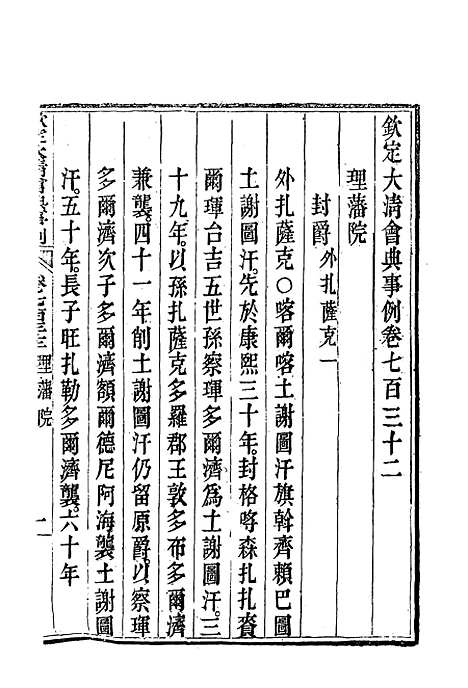 欽定大淸會典事例卷七百三十二
理藩院
封爵外扎薩克一
外扎薩克○喀爾喀土謝圖汗旗斡齊賴巴圖
土謝圖汗。先於康熙三十年。封格喀森扎扎賚
爾琿台吉五世孫察琿多爾濟爲土謝圖汗。三
十九年。以孫扎薩克多羅郡王敦多布多爾濟
兼襲。四十一年削土謝圖汗仍留原爵。以察琿
多爾濟次子多爾濟額爾德尼阿海襲土謝圖
汗。五十年。長子旺扎勒多爾濟襲。六十年
理藩院
一